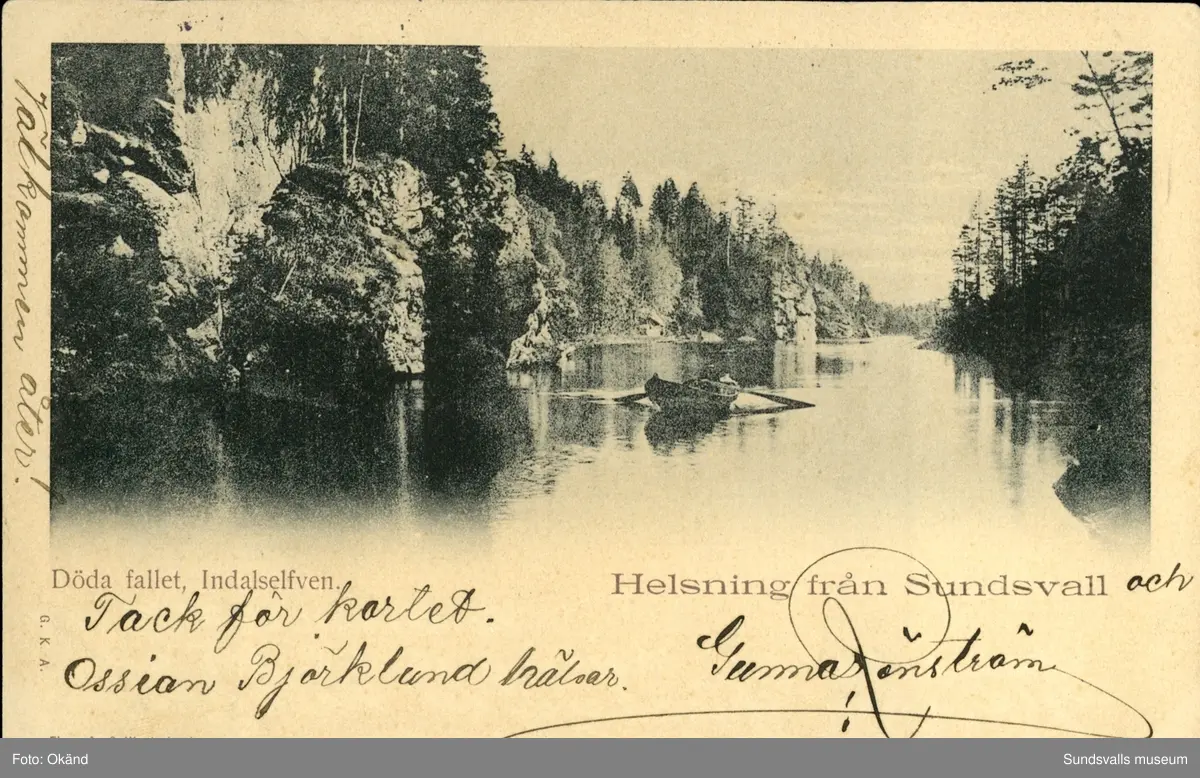 Välkommen åter!
Döda fallet, Indalselfven.
Helsning från Sundsvall och
Tack för kortet.
Gunnar Jönström
Ossian Björklund hälsar.
G. K. A.
Foto: Okänd
Sundsvalls museum